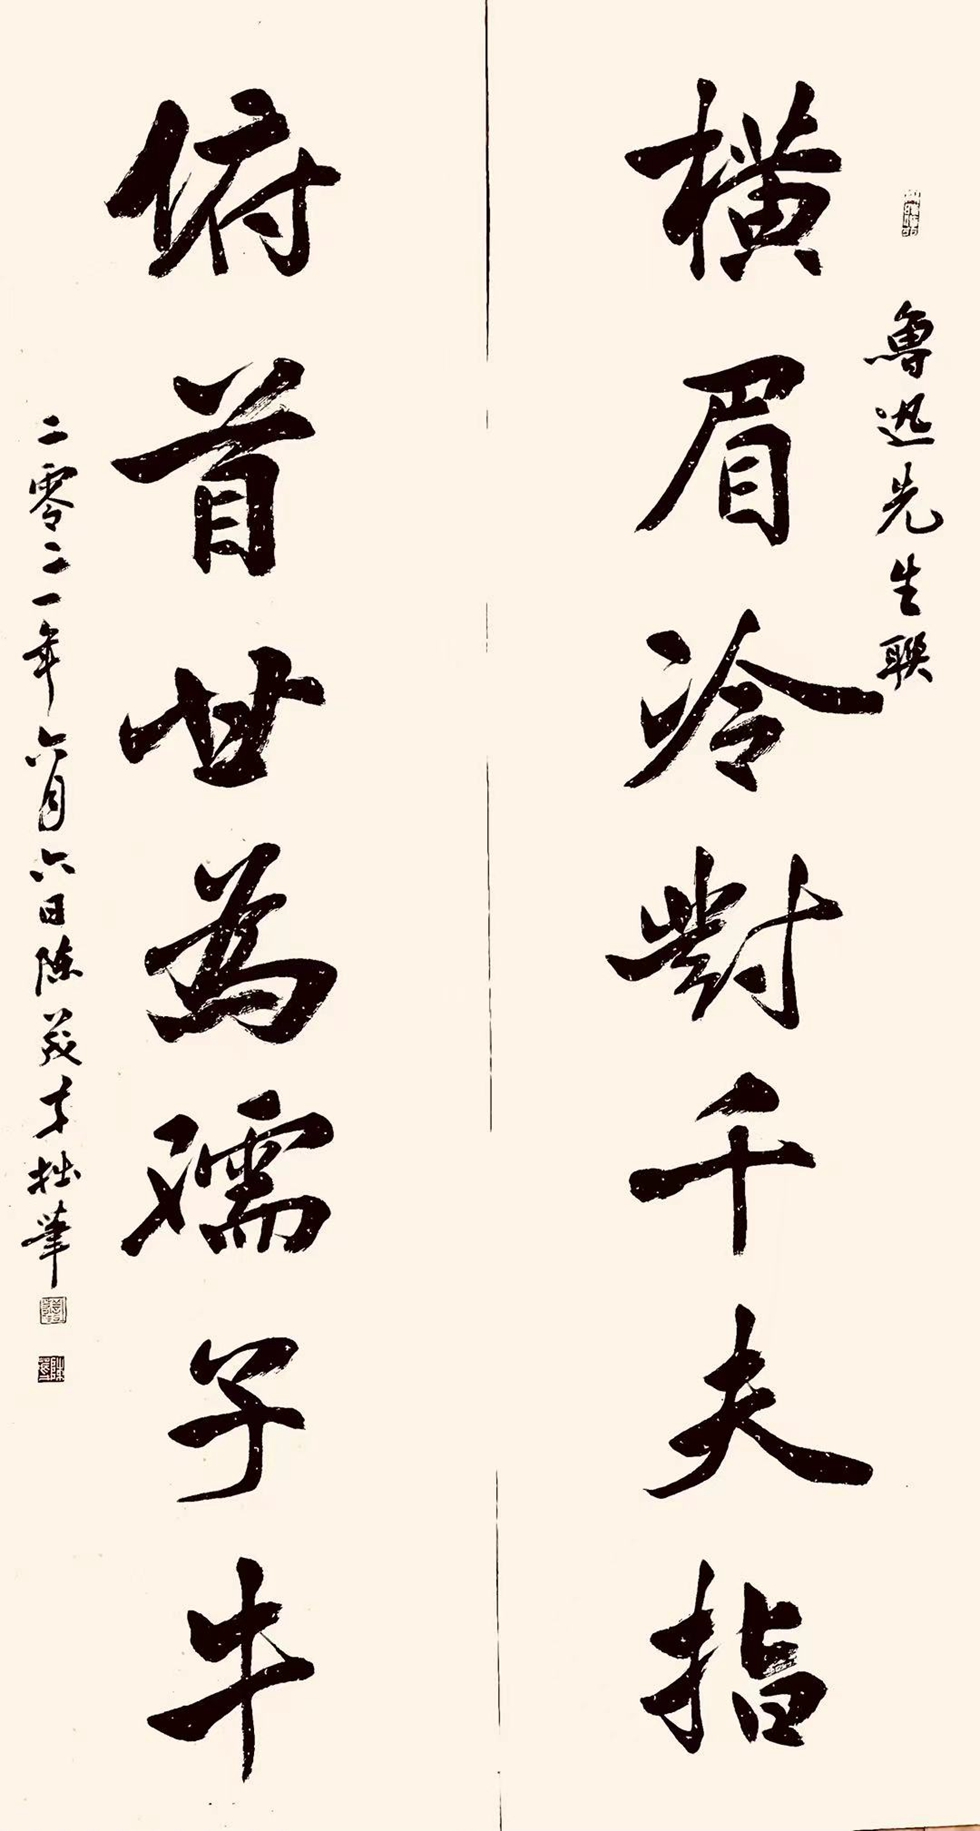 魯迅先生聯
橫眉冷對千夫指
俯首甘為孺子牛
二零二一年六月六日陳茂才拙筆